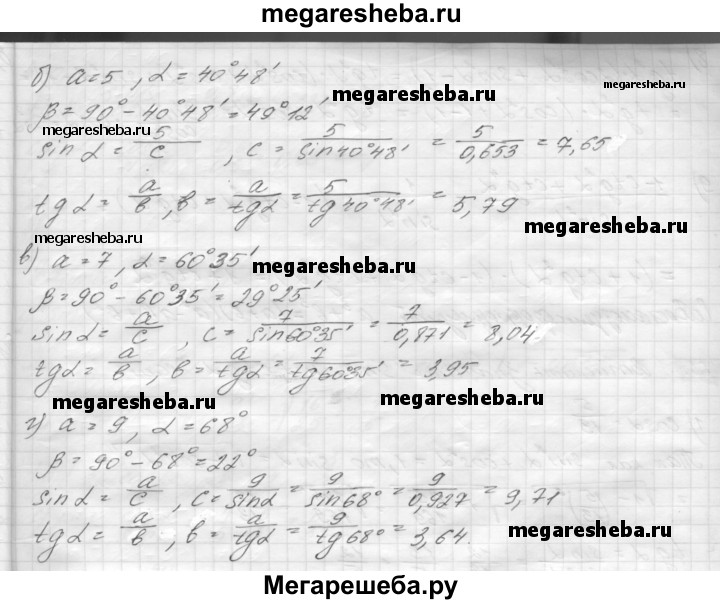 megaresheba.ru
б) a=5, α=40°48′
megaresheba.ru
megaresheba.ru
β=90°-40°48′=49°12′
megaresheba.ru
sin α = 5/c, c = 5/sin40°48′ = 5/0,653 = 7,65
tg α = a/в, в = a/tgα = 5/tg40°48′ = 5,79
megaresheba.ru
megaresheba.ru
в) a=7, α=60°35′
megaresheba.ru
β=90°-60°35′=29°25′
sin α = a/c, c = 7/sin60°35′ = 7/0,871 = 8,04.
tg α = a/в, в = a/tgα = 7/tg60°35′ = 3,95
megaresheba.ru
megaresheba.ru
г) a=9, α=68°
β=90°-68°=22°
sin α = a/c, c = 9/sinα = 9/sin68° = 9/0,927 = 9,71
tg α = a/в, в = a/tgα = 9/tg68° = 3,64.
megaresheba.ru
Мегарешеба.ру